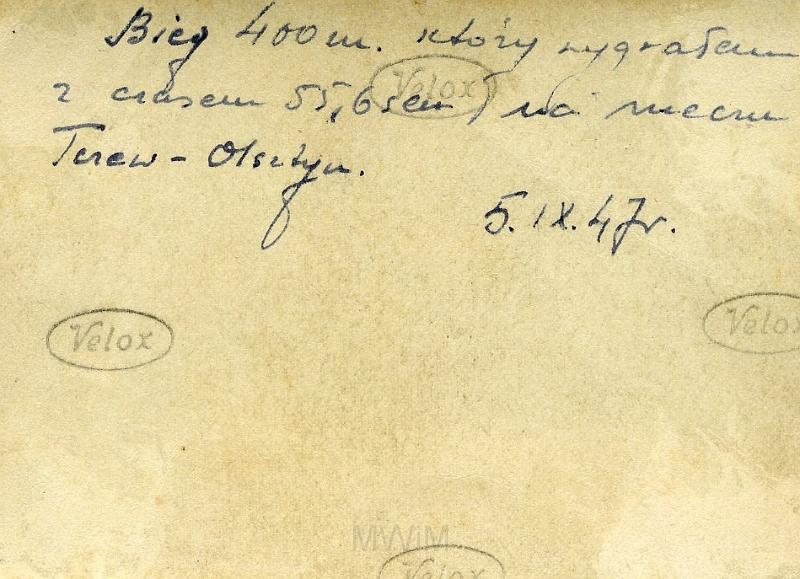 Bieg 400 m. który wygrałem
z czasem 55,6 sem) na meczu
Tczew - Olsztyn.
5. IX. 47 r.
Velox
Velox
Velox
Velox
MWiM